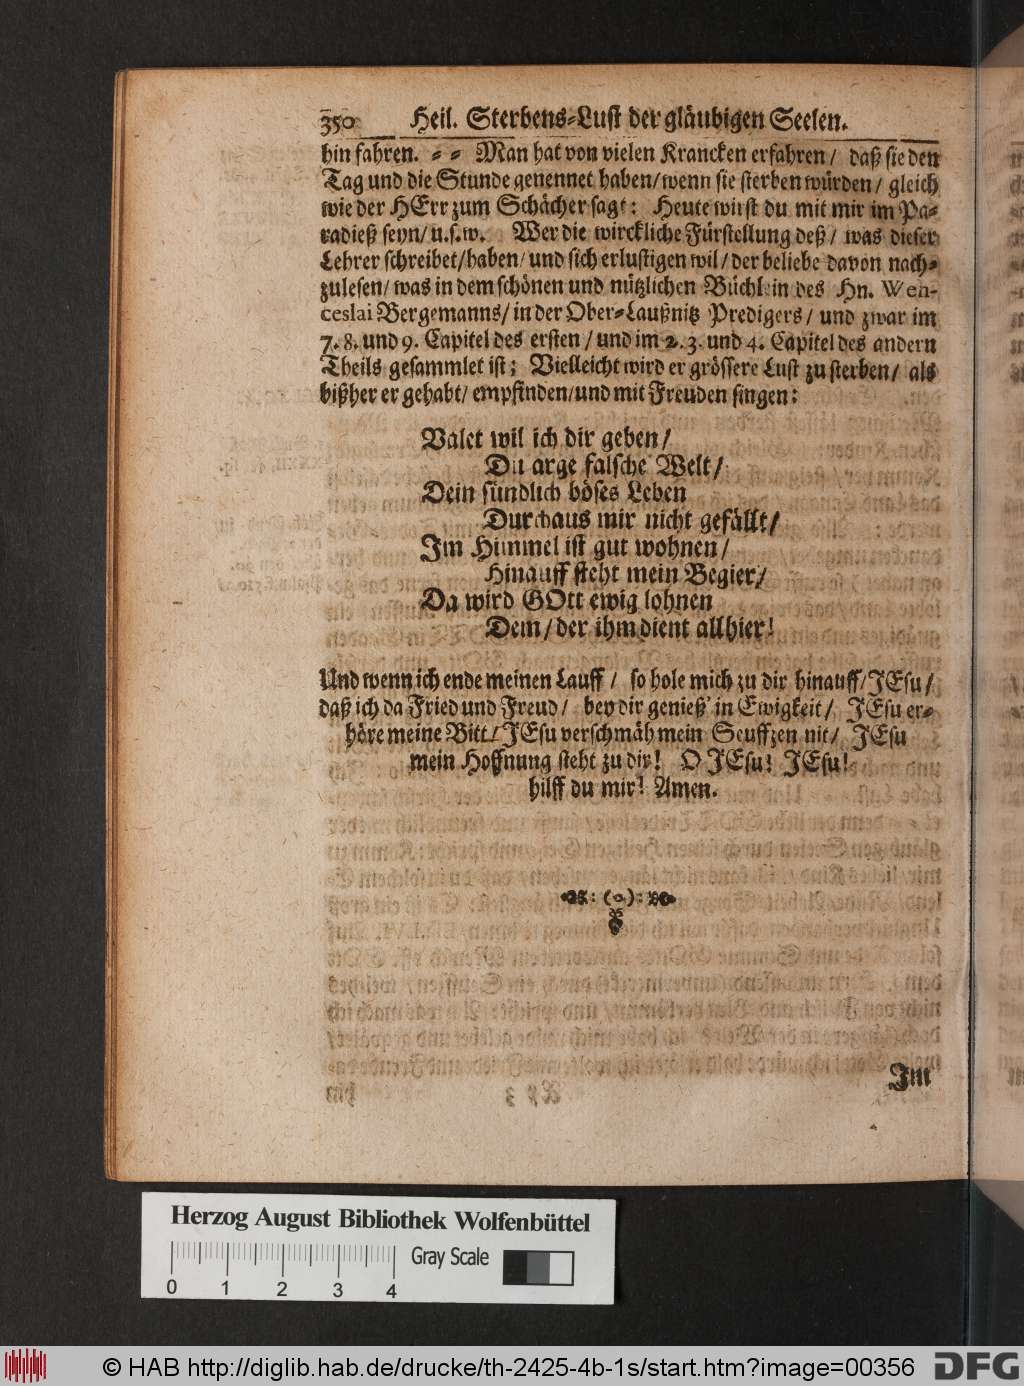 350 Heil. Sterbens-Lust der gläubigen Seelen.
hin fahren. - - Man hat von vielen Krancken erfahren / daß sie den
Tag und die Stunde genennet haben/ wenn sie sterben würden / gleich
wie der HErr zum Schächer sagt: Heute wirst du mit mir im Pa-
radieß seyn/ u.s.w. Wer die wirckliche Fürstellung deß / was dieser
Lehrer schreibet/ haben/ und sich erlustigen wil/ der beliebe davon nach-
zulesen/ was in dem schönen und nützlichen Büchlein des Hn. Wen-
ceslai Bergemanns/ in der Ober-Laußnitz Predigers / und zwar im
7. 8. und 9. Capitel des ersten / und im 2. 3. und 4. Capitel des andern
Theils gesammlet ist; Vielleicht wird er grössere Lust zu sterben/ als
bißher er gehabt/ empfinden/ und mit Freuden singen:
Valet wil ich dir geben /
Du arge falsche Welt /
Dein sündlich böses Leben
Durchaus mir nicht gefällt /
Im Himmel ist gut wohnen /
Hinauff steht mein Begier /
Da wird GOtt ewig lohnen
Dem / der ihm dient allhier!
Und wenn ich ende meinen Lauff / so hole mich zu dir hinauff / JEsu /
daß ich da Fried und Freud / bey dir genieß' in Ewigkeit / JEsu er-
höre meine Bitt / JEsu verschmäh mein Seuffzen nit / JEsu
mein Hoffnung steht zu dir! O JEsu! JEsu!
hilff du mir! Amen.
Im
Herzog August Bibliothek Wolfenbüttel
Gray Scale
0 1 2 3 4
© HAB http://diglib.hab.de/drucke/th-2425-4b-1s/start.htm?image=00356 DFG